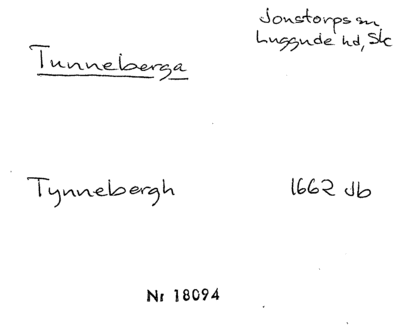 Jonstorps sn
Luggude hd, Sk
Tunneberga
Tynnebergh 1662 Jb
Nr 18094